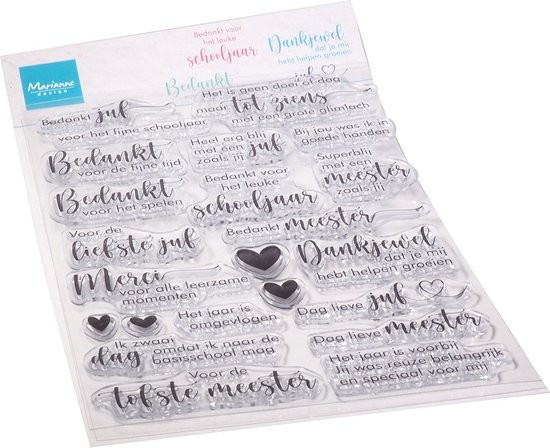 Bedankt voor
het leuke
schooljaar
Dankjewel
dat je mij
hebt helpen groeien
Bedankt
juf
Marianne
design
Het is geen doei of dag
maar tot ziens
met een grote glimlach
Bedankt juf
voor het fijne schooljaar
Heel erg blij
met een juf
zoals jij
Bij jou was ik in
goede handen
Bedankt
voor de fijne tijd
Superblij
met een
meester
zoals jij
Bedankt voor
het leuke
schooljaar
Bedankt
voor het spelen
Bedankt meester
Voor de
liefste juf
Dankjewel
dat je mij
hebt helpen groeien
Merci
voor alle leerzame
momenten
Dag lieve juf
Het jaar is
omgevlogen
Dag lieve meester
Ik zwaai
dag omdat ik naar de
basisschool mag
Het jaar is voorbij
Jij was reuze belangrijk
en speciaal voor mij
Voor de
tofste meester